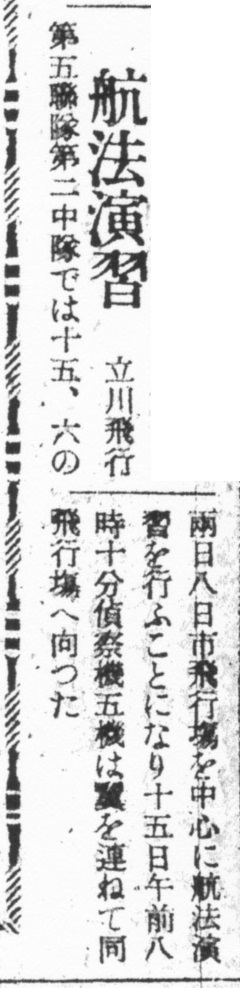 航法演習
立川飛行
第五聯隊第二中隊では十五、六の
兩日八日市飛行場を中心に航法演
習を行ふことになり十五日午前八
時十分偵察機五機は翼を連ねて同
飛行場へ向つた